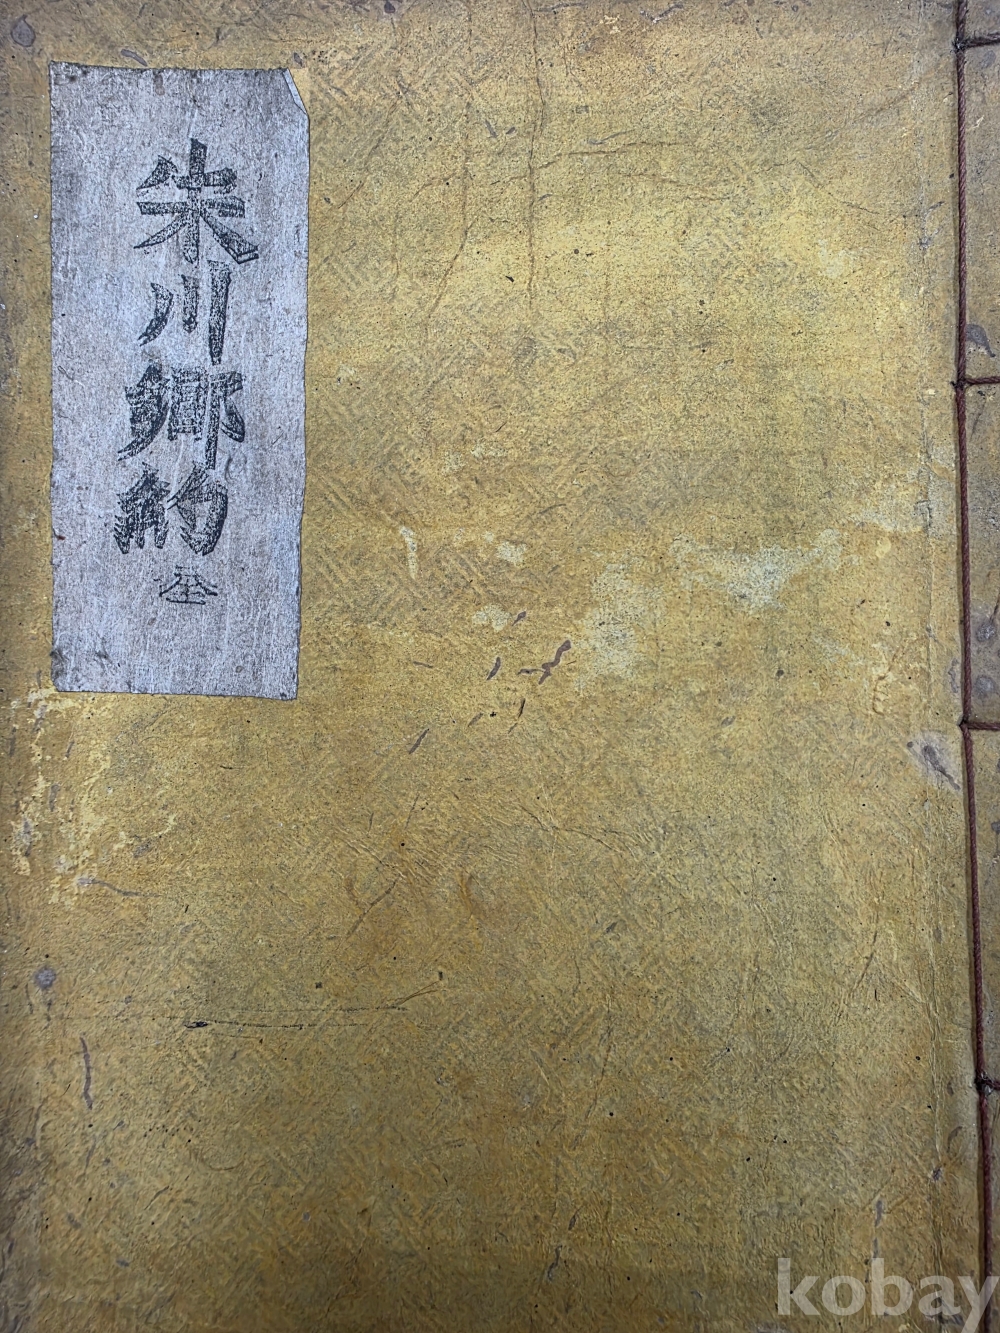 朱川鄉約 全
kobay